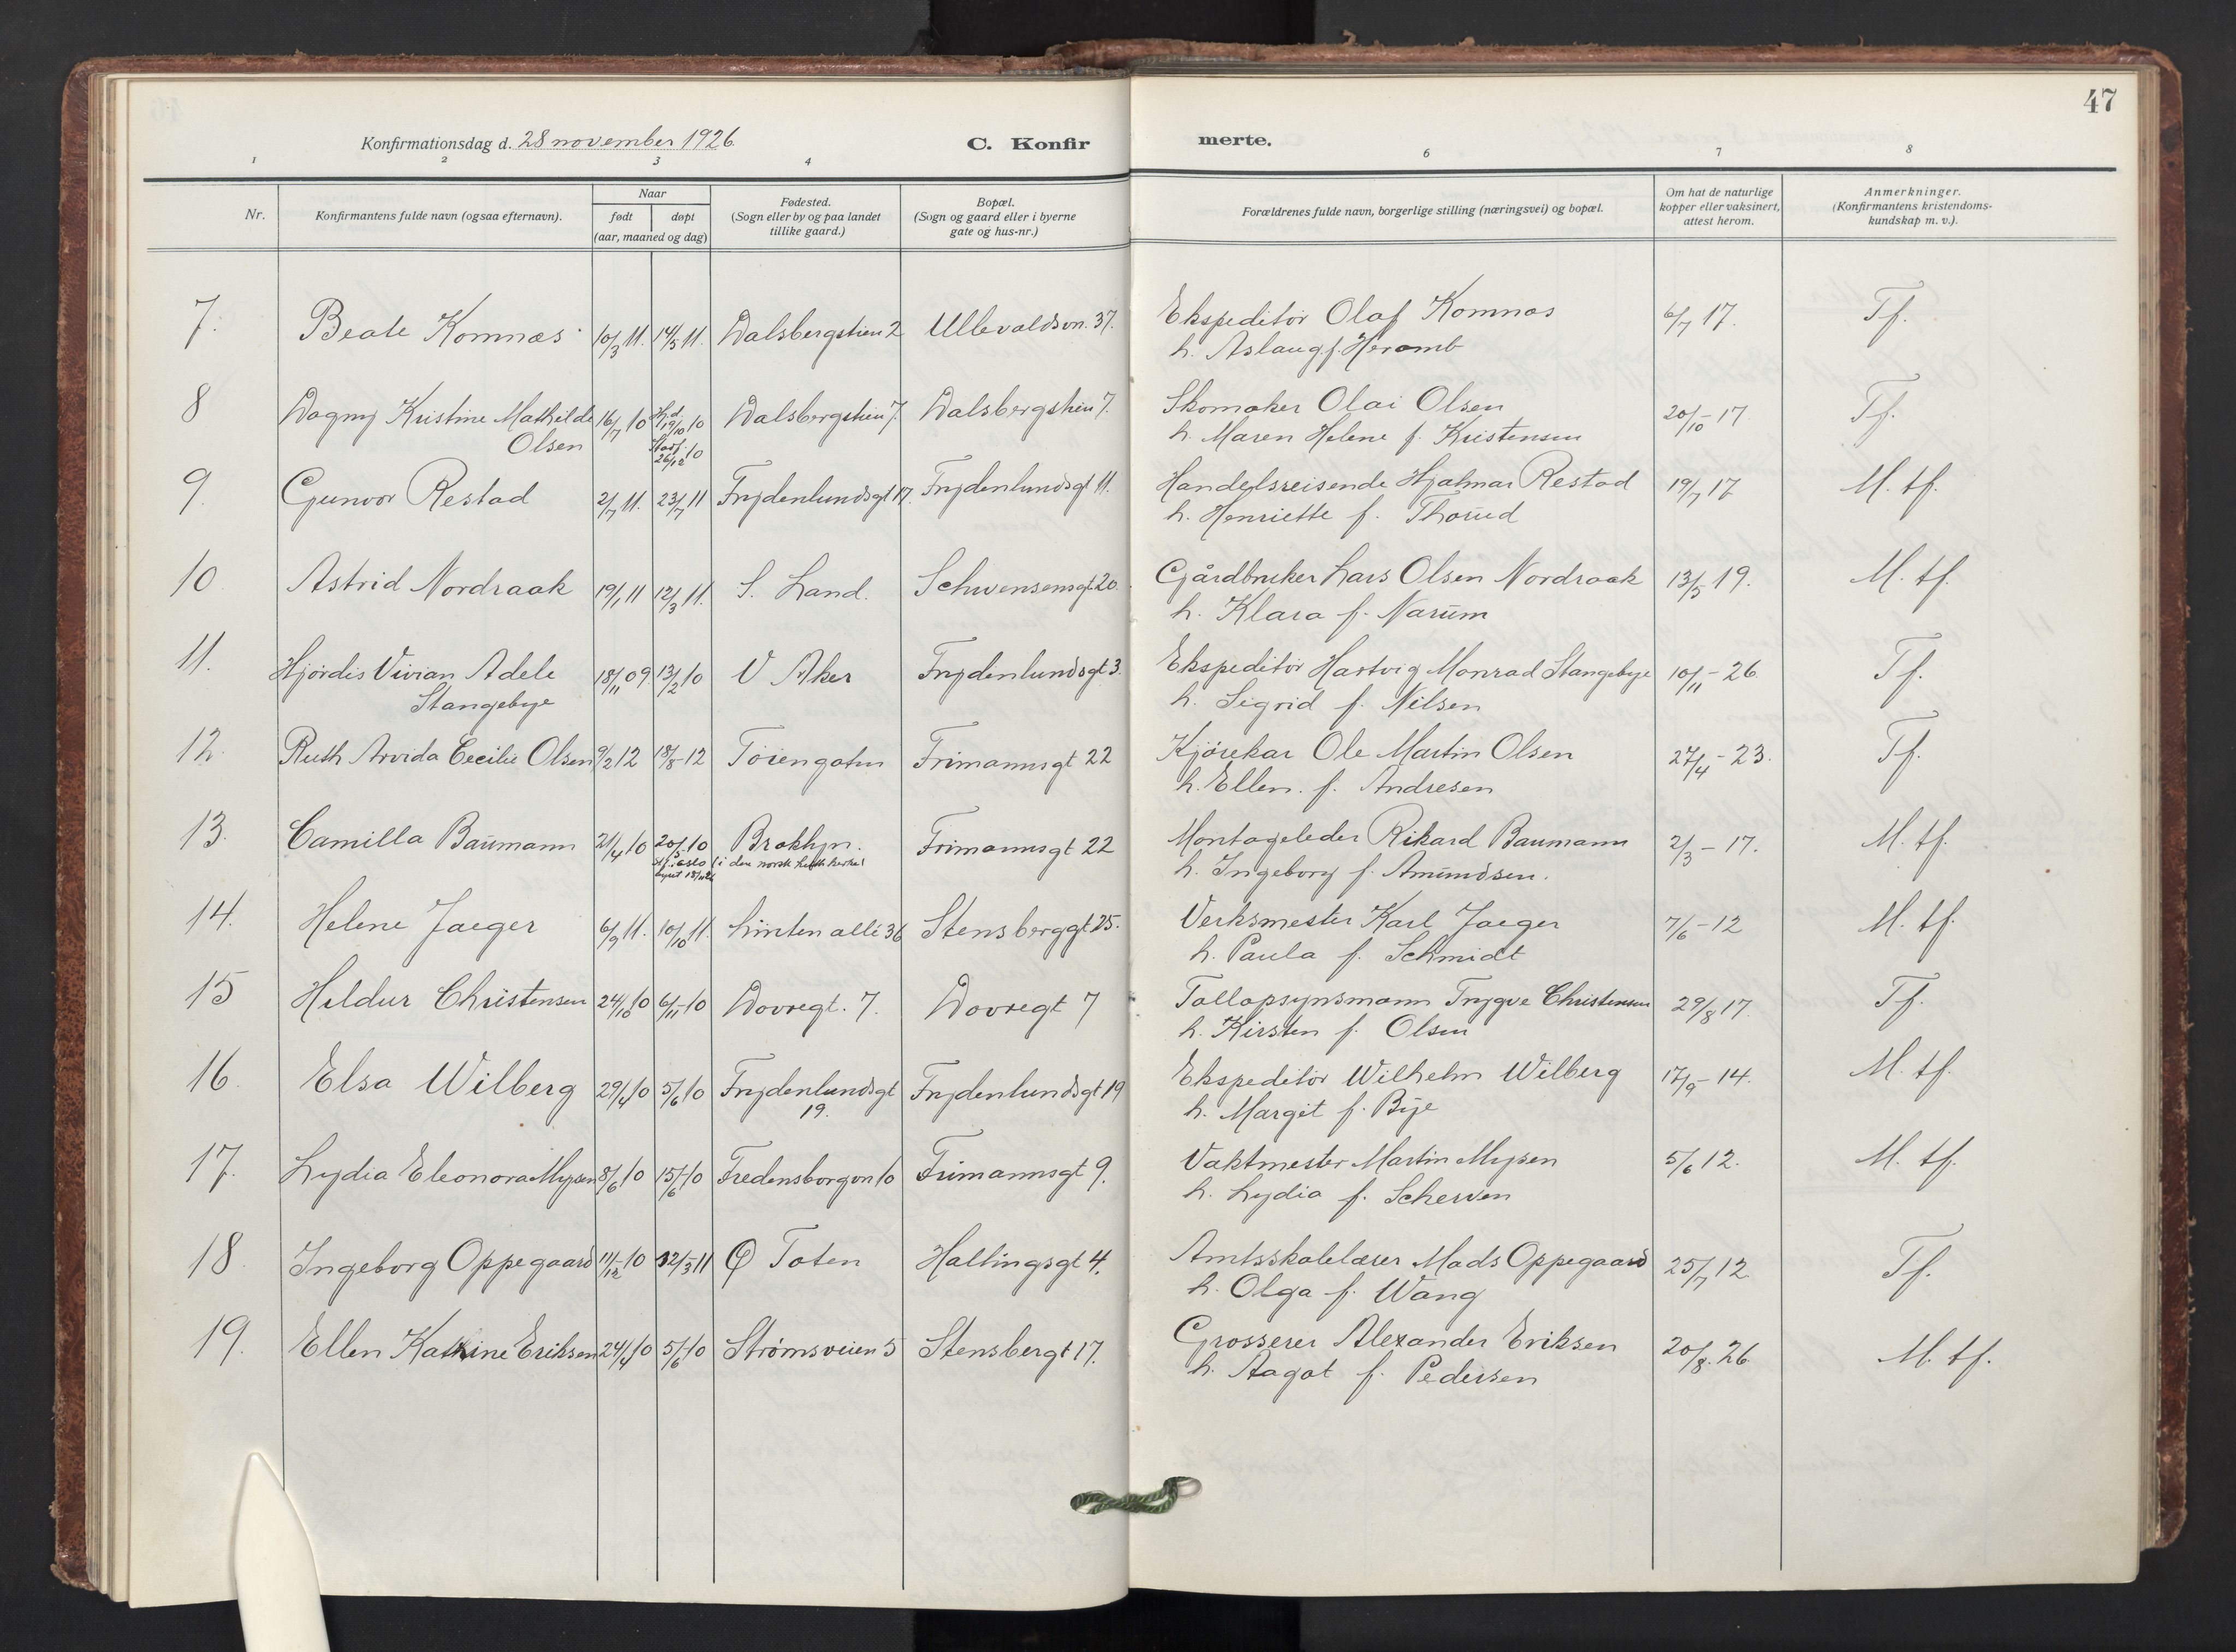 47
Konfirmationsdag d. 28 november 1926
C. Konfirmerte.
1 2 3 4 6 7 8
Nr.
Konfirmantens fulde navn (ogsaa efternavn).
Naar
født døpt
(aar, maaned og dag)
Fødested.
(Sogn eller by og paa landet
tillike gaard.)
Bopæl.
(Sogn og gaard eller i byerne
gate og hus-nr.)
Forældrenes fulde navn, borgerlige stilling (næringsvei) og bopæl.
Om hat de naturlige
kopper eller vaksinert,
attest herom.
Anmerkninger.
(Konfirmantens kristendoms-
kundskap m. v.).
7. Beate Komnæs 10/3 11. 14/5 11. Dalsbergstien 2 Ullevaldsvn. 37. Ekspeditör Olaf Komnæs 6/7 17. Tf.
h. Aslaug f. Heramb
8 Dagny Kristine Mathilde 16/7 10 Hj.d. 19/10 10 Dalsbergstien 7. Dalsbergstien 7. Skomaker Olai Olsen 20/10 - 17 Tf.
Olsen Stadf. 26/12 10 h. Maren Helene f. Kristensen
9. Gunvor Restad 2/7 11. 23/7 11 Frydenlundsgt 17. Frydenlundsgt 11. Handelsreisende Hjalmar Restad 19/7 17 M. tf.
h. Henriette f. Thorud
10 Astrid Nordraak 19/1 11 12/3 11. S. Land. Schwensensgt. 20. Gårdbruker Lars Olsen Nordraak 13/5 19. M. tf.
h. Klara f. Narum
11. Hjördis Vivian Adele 18/11 09 13/2 10 V Aker Frydenlundsgt 3. Ekspeditör Hartvig Monrad Stangebye 10/11 - 26. Tf.
Stangebye h. Sigrid f. Nilsen
12. Ruth Arvida Cecilie Olsen 9/2 12 18/8 - 12 Töiengaten Frimannsgt 22 Kjörekar Ole Martin Olsen 27/4 - 23. Tf.
h. Ellen. f. Andresen
13. Camilla Baumann 21/4 10 20/5 10 Broklyn. Frimannsgt 22 Montageleder Rikard Baumann 2/3 - 17. M. tf.
(i den norsk luth. kirke) h. Ingeborg f. Amundsen.
14. Helene Jaeger 6/9 11. 10/10 11. Linten allé 36 Stensberggt 25. Verksmester Karl Jaeger 7/6 - 12 M. tf.
h. Paula f. Schmidt
15 Hildur Christensen 24/10 10 6/11 - 10 Dovregt. 7. Dovregt 7 Tollopsynsmann Trygve Christensen 29/8 17. Tf.
h. Kirsten f. Olsen
16. Elsa Wilberg 29/4 10 5/6 10 Frydenlundsgt Frydenlundsgt 19 Ekspeditör Wilhelm Wilberg 17/9 - 14. M. tf.
19. h. Margit f. Bye
17. Lydia Eleonora Mysen 8/6 10 15/6 10 Fredensborgvn 10 Frimannsgt 9. Vaktmester Martin Mysen 5/6 12. M. tf.
h. Lydia f. Scherven
18. Ingeborg Oppegaard 11/12 - 10 12/3 11 Ø Toten Hallingsgt 4. Amtsskolelærer Mads Oppegaard 25/7 12. Tf.
h. Olga f. Wang
19. Ellen Katrine Eriksen 24/4 10 5/6 10 Strømsveien 5 Stensbergt 17. Grosserer Alexander Eriksen 20/8. 26. M. tf.
h. Aagot f. Pedersen